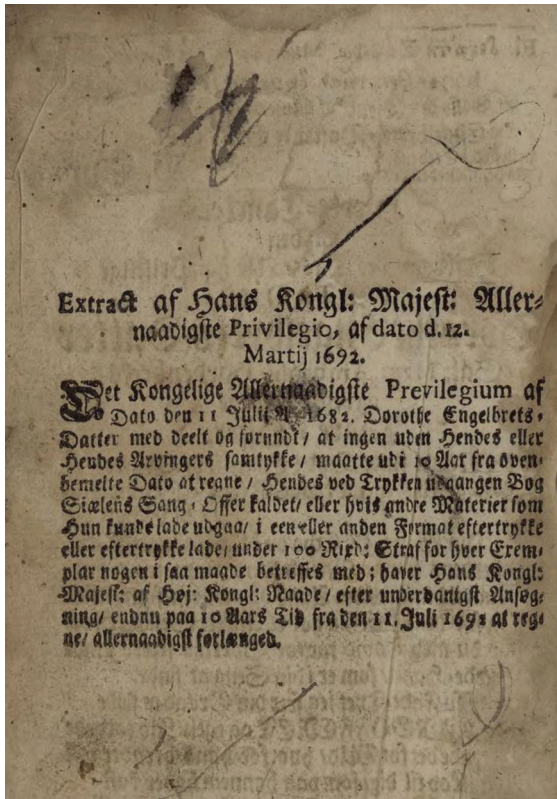 Extract af Hans Kongl: Majest: Aller-
naadigste Privilegio, af dato d. 12.
Martij 1692.
Det Kongelige Allernaadigste Previlegium af
Dato den 11 Julii A. 1682. Dorothe Engelbrets-
Datter med deelt og forundt / at ingen uden Hendes eller
Hendes Arvingers samtykke / maatte udi 10 Aar fra oven-
bemelte Dato at regne / Hendes ved Trykken udgangen Bog
Siælens Sang-Offer kaldet / eller hvis andre Materier som
Hun kunde lade udgaa / i een eller anden Format eftertrykke
eller eftertrykke lade / under 100 Rixd: Straf for hver Exem-
plar nogen i saa maade betreffes med ; haver Hans Kongl:
Majest: af Høj: Kongl: Naade / efter underdanigst Ansøg-
ning / endnu paa 10 Aars Tid fra den 11. Juli 1692 at reg-
ne / allernaadigst forlænged.